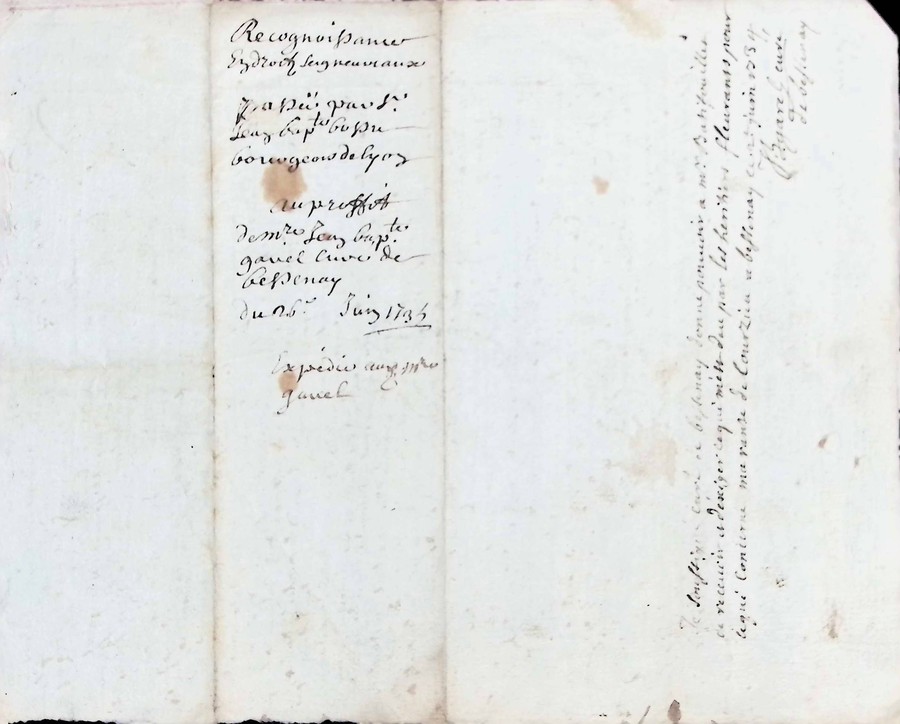 Recognoissance
En droitz seigneuriaux
passée par Sr.
Jean bapte. bossu
bourgeois de Lyon
au proffit
de mre. Jean bapte.
gavel Curé de
bessenay
du 26e. Juin 1734
Expédié aud. mre
gavel
Je soussigné curé de bessenay donne pouvoir a mr.
de recevoir et d'exiger ce qui m'est deu par les heritiers fleurants pour
ce qui concerne ma rante de Courzieu a bessenay ce juin
curé
de bessenay